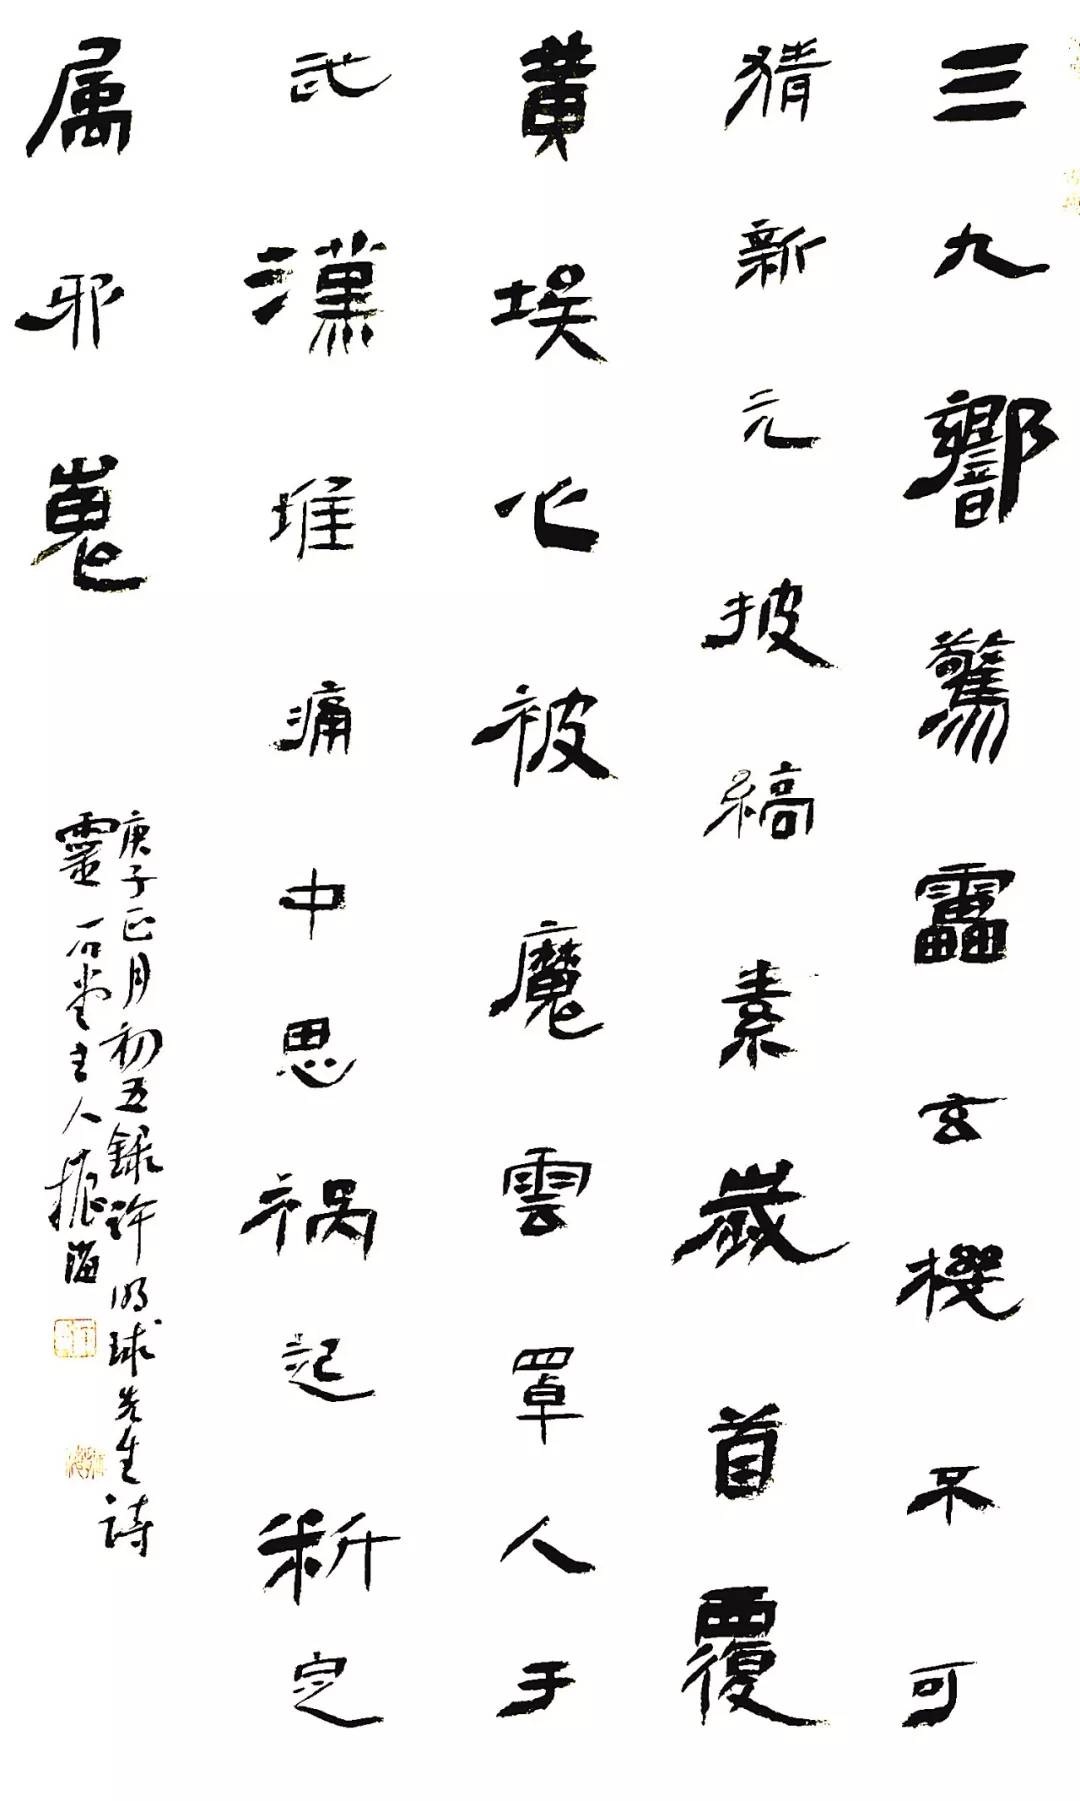 三九響驚靁玄機不可
猜新元披縞素歲首覆
黄埃心被魔雲罩人于
武漢堆痛中思祸起析定
属邪嵬
庚子正月初五録許明球先生詩
靈石堂主人振海